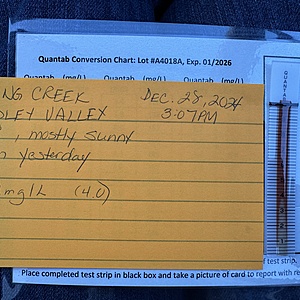 Quantab Conversion Chart: Lot #A4018A, Exp. 01/2026
Quantab (mg/L) Quantab (mg/L) Quantab (mg/L)
NG CREEK
DEC. 28, 2024
DLEY VALLEY
3:07PM
, mostly sunny
yesterday
mg/L (4.0)
QUANTAB
of test strip.
Place completed test strip in black box and take a picture of card to report with re